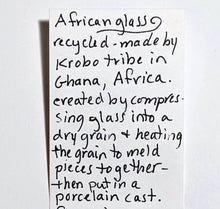 African glass
recycled - made by
Krobo tribe in
Ghana, Africa.
created by compres-
sing glass into a
dry grain & heating
the grain to meld
pieces together-
then put in a
porcelain cast.